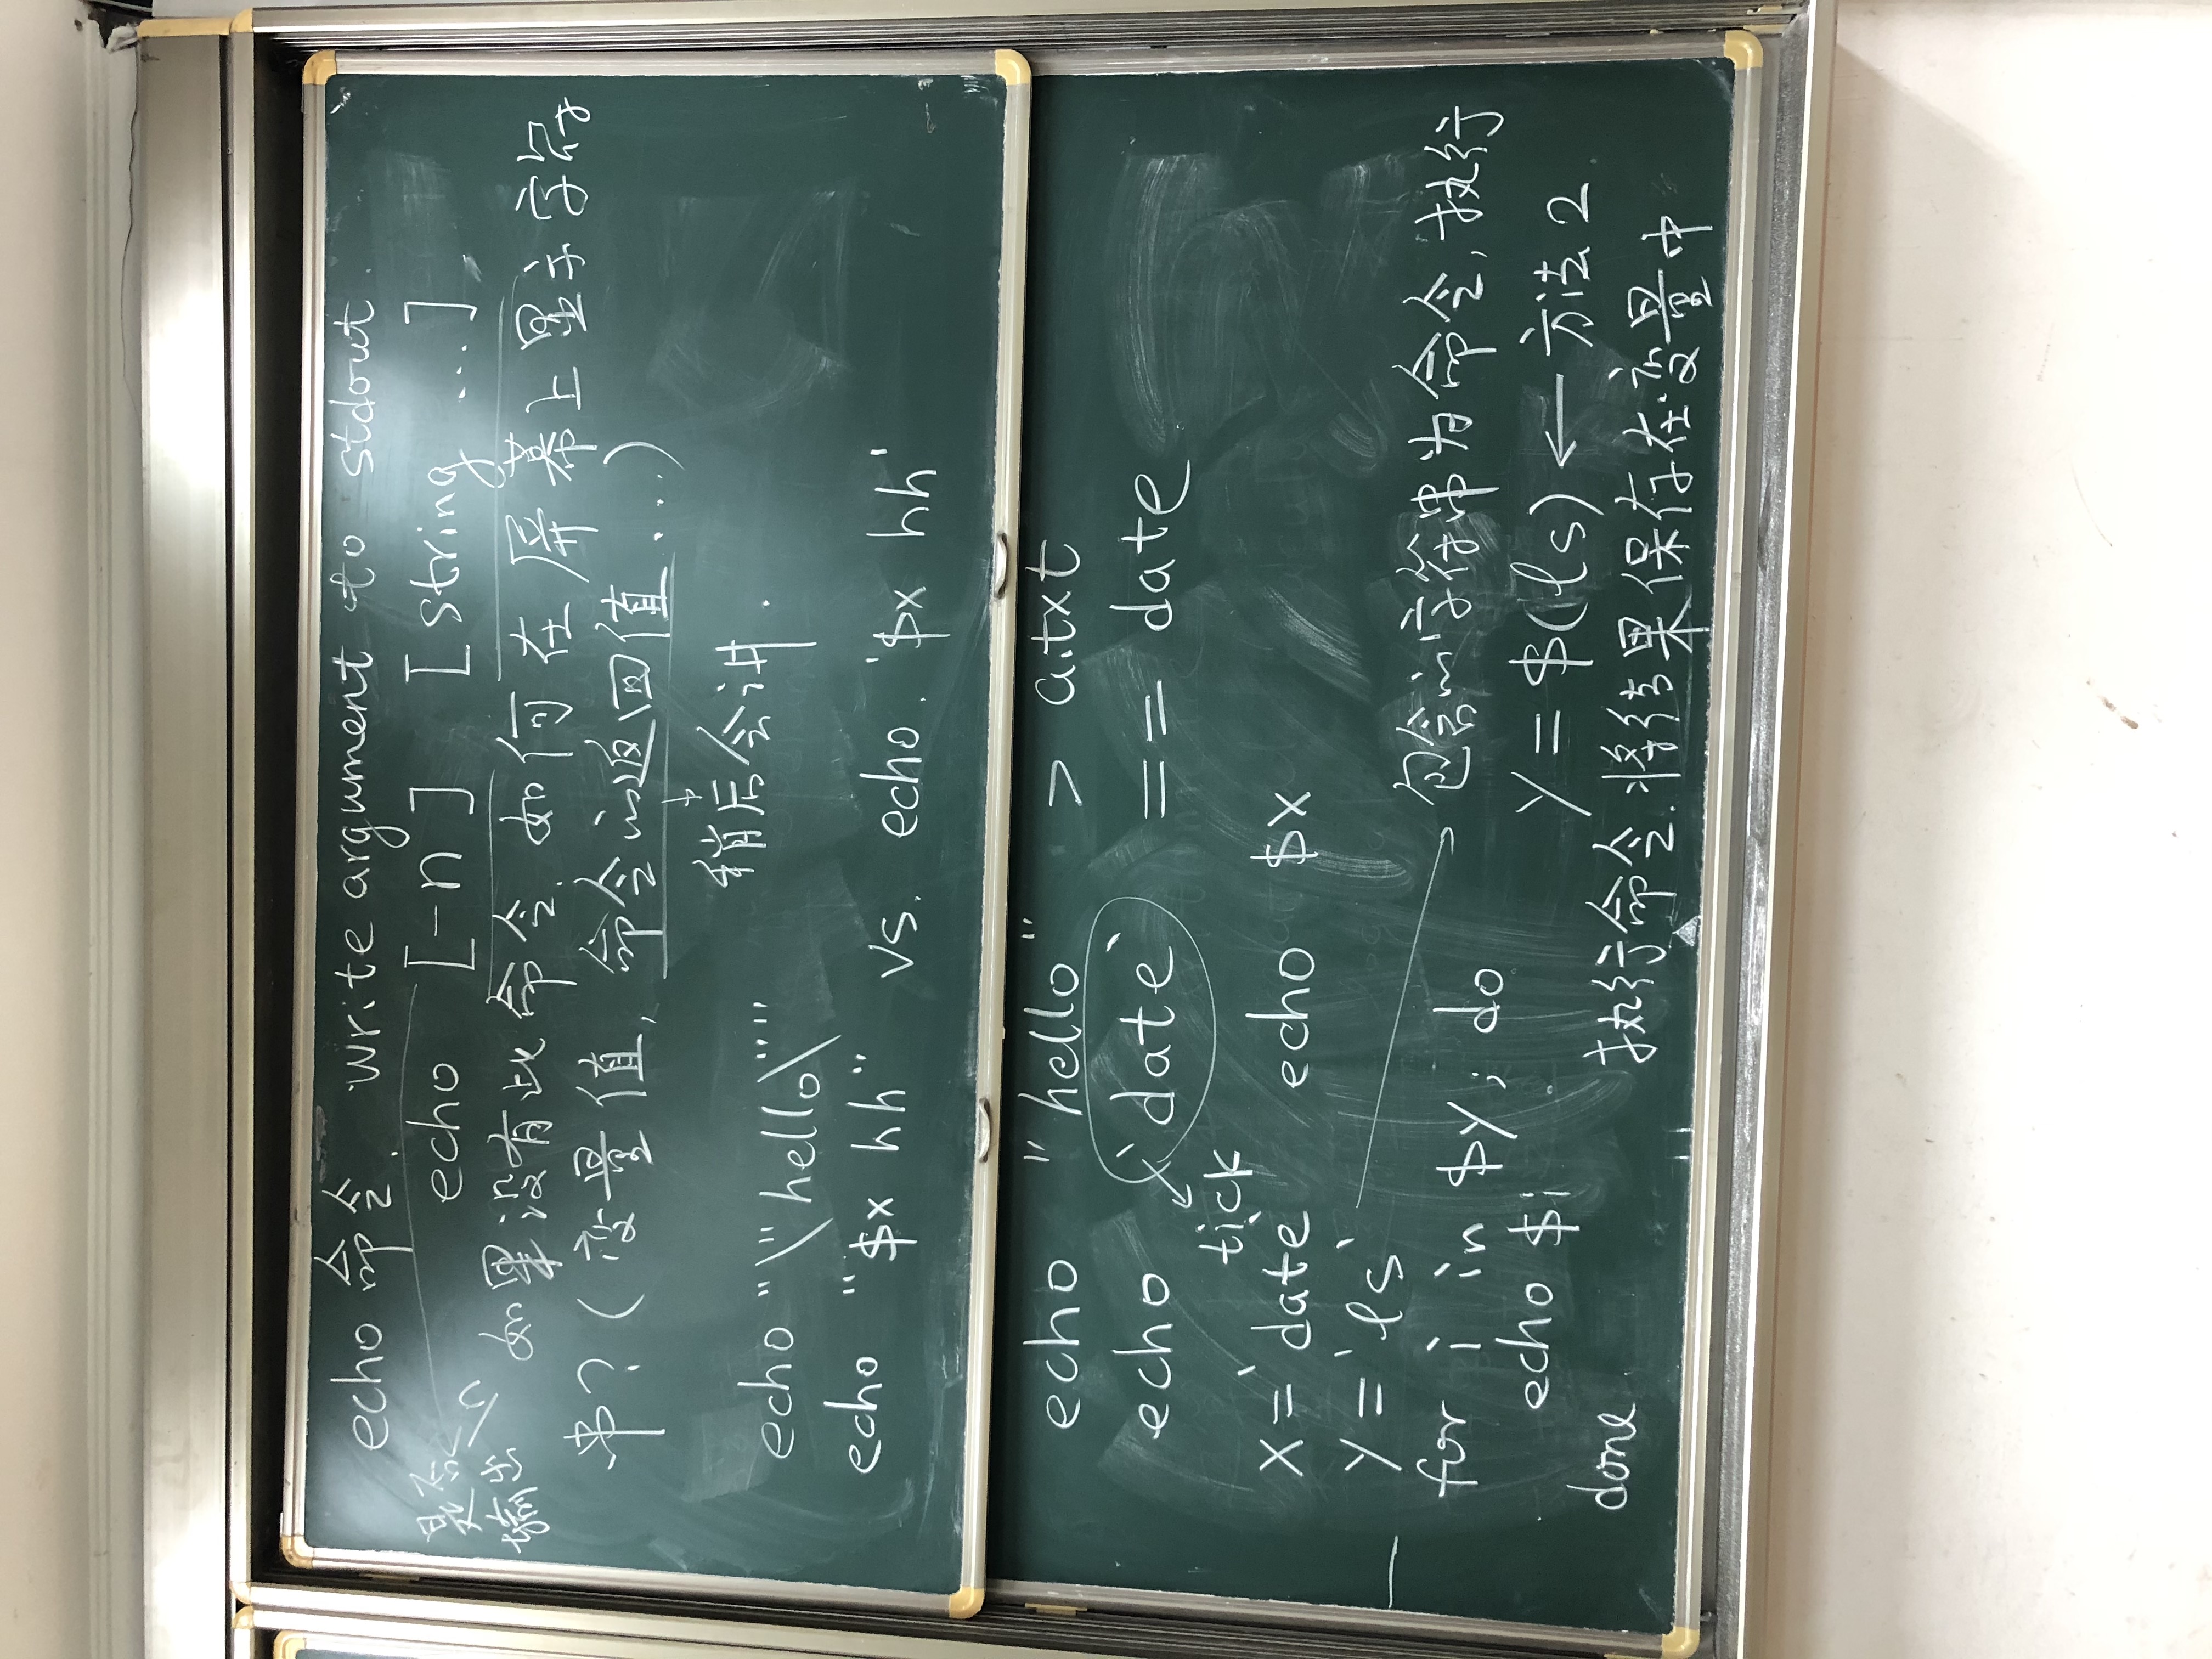 echo 命令. write argument to stdout.
echo [-n] [string ...]
是否
输出
如果没有此命令. 如何在屏幕上显示字符
串?(变量值, 命令的返回值...)
稍后会讲.
echo "\"hello\""
echo "$x hh" vs. echo '$x hh'
echo "hello" > a.txt
echo `date` == date
tick
x=`date` echo $x
y=`ls` 包含的字符串为命令, 执行
for i in $y; do y=$(ls) ← 方法2
echo $i 执行命令. 将结果保存在变量中
done